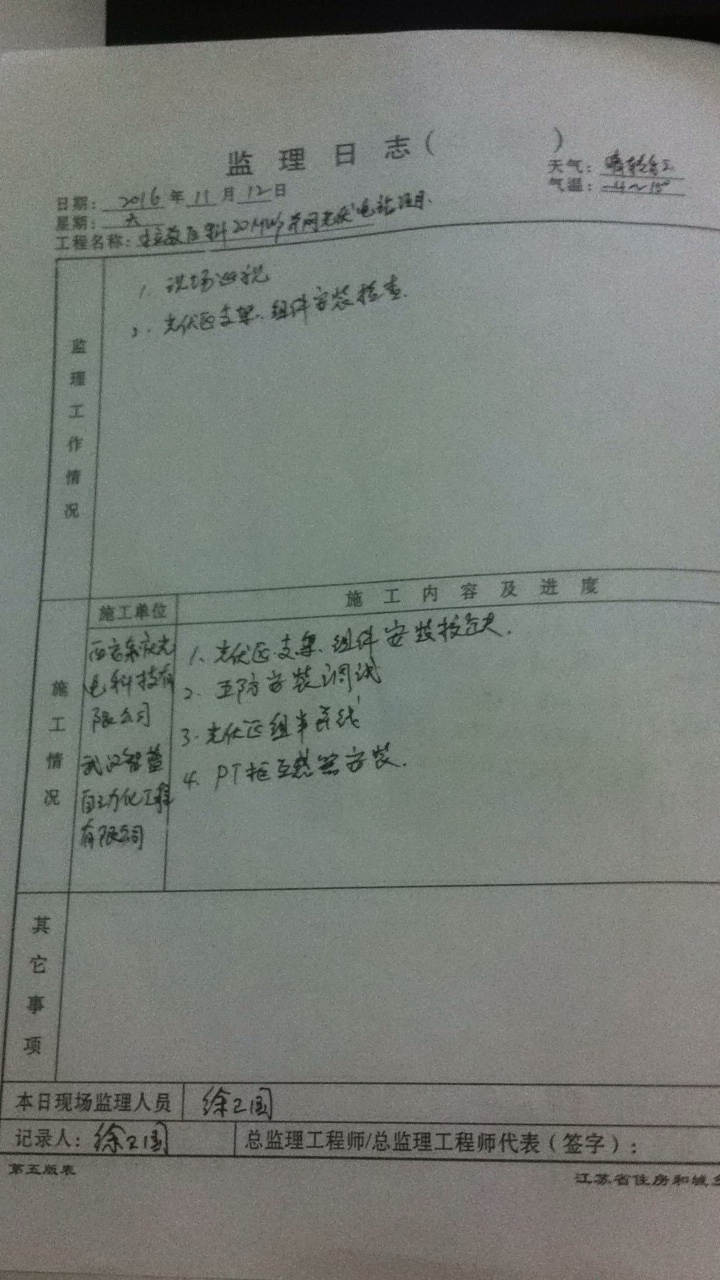 监理日志( )
天气:晴转多云
日期:2016年11月12日
气温:-4~15°
星期:天
工程名称: 20MWp并网光伏电站项目
监理工作情况
1. 现场巡视
2. 光伏区支架、组件安装检查.
施工情况
施工单位
施工内容及进度
光
电科技有
限公司
武汉智益
自动化工程
有限公司
1. 光伏区支架、组件安装
2. 五防安装调试
3. 光伏区组串系线
4. PT柜互感器安装.
其它事项
本日现场监理人员 徐卫国
记录人: 徐卫国 总监理工程师/总监理工程师代表(签字):
第五版表 江苏省住房和城乡